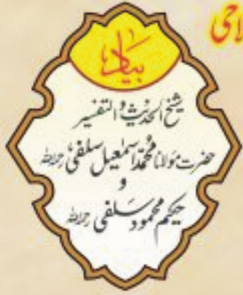 بیاد
شیخ الحدیث والتفسیر
حضرت مولانا محمد اسمٰعیل سلفی رحمہ اللہ
و
حکیم محمود سلفی رحمہ اللہ